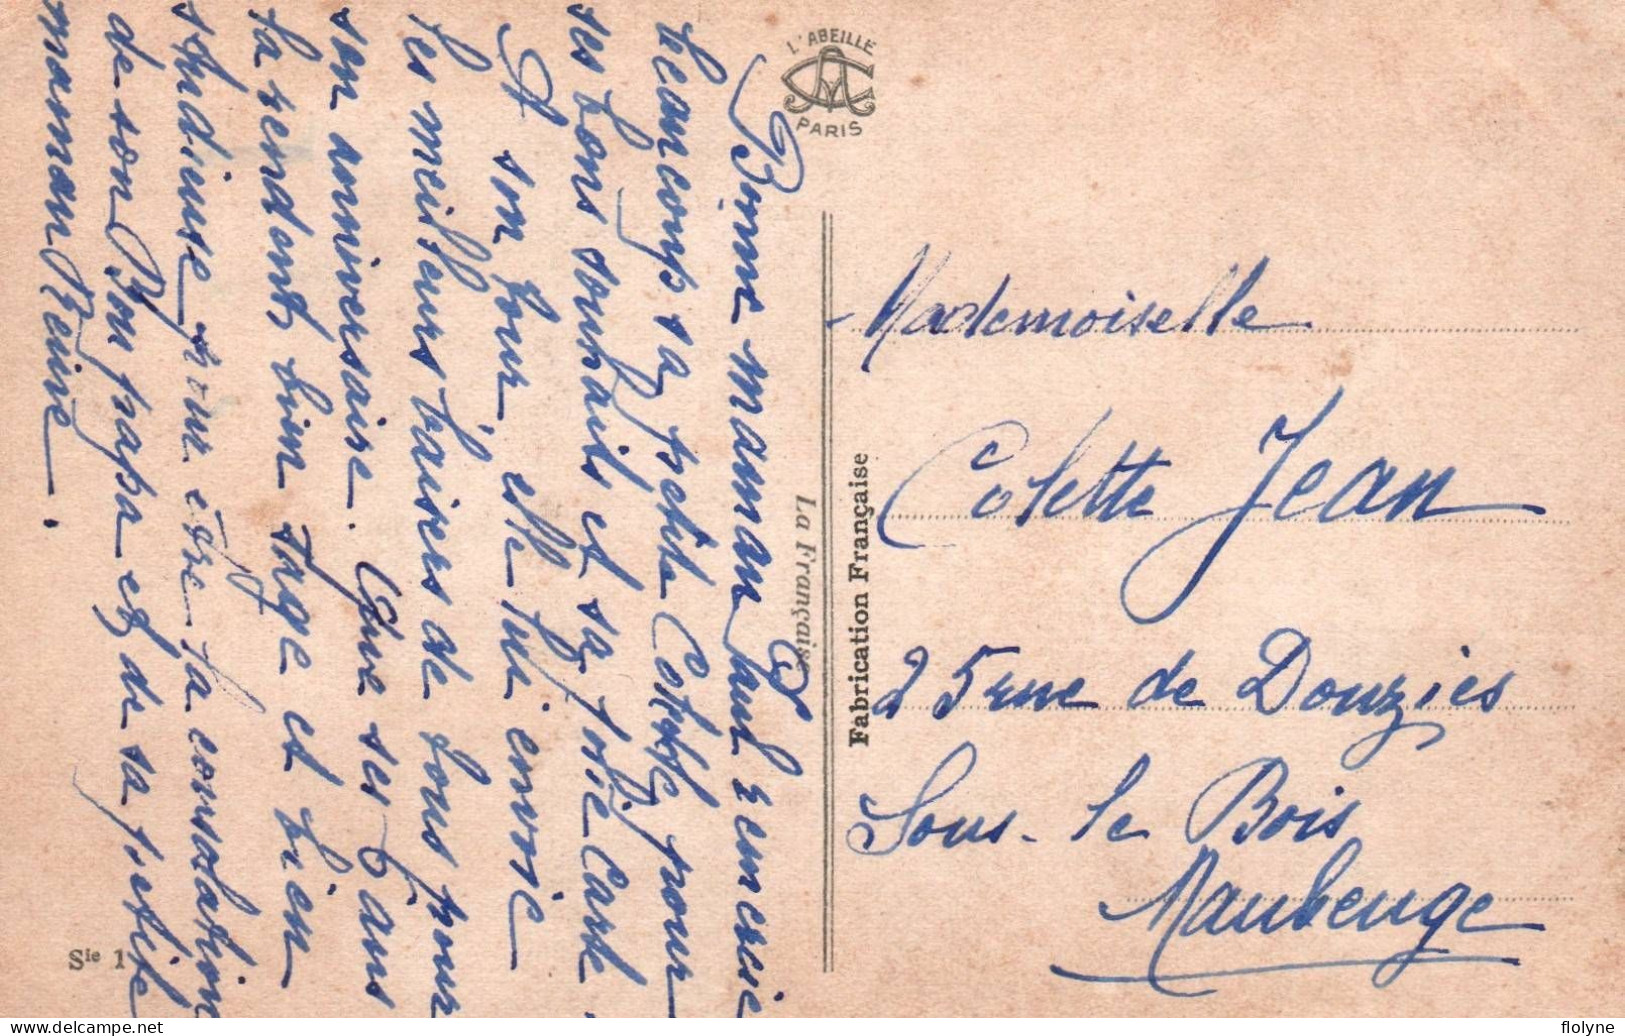 L'ABEILLE
PARIS
Bonne maman Paul remercie
beaucoup sa petite Colette pour
ses bons souhaits et sa jolie carte.
A son tour, elle lui envoie
les meilleurs baisers de tous pour
son anniversaire. Que ses 7 ans
la rendent bien sage et bien
studieuse pour être la consolation
de son Bon papa et de sa petite
maman Reine.
La Française
Fabrication Française
Mademoiselle
Colette Jean
25 rue de Douzies
Sous-le Bois
Maubeuge
Sie 1
flolyne